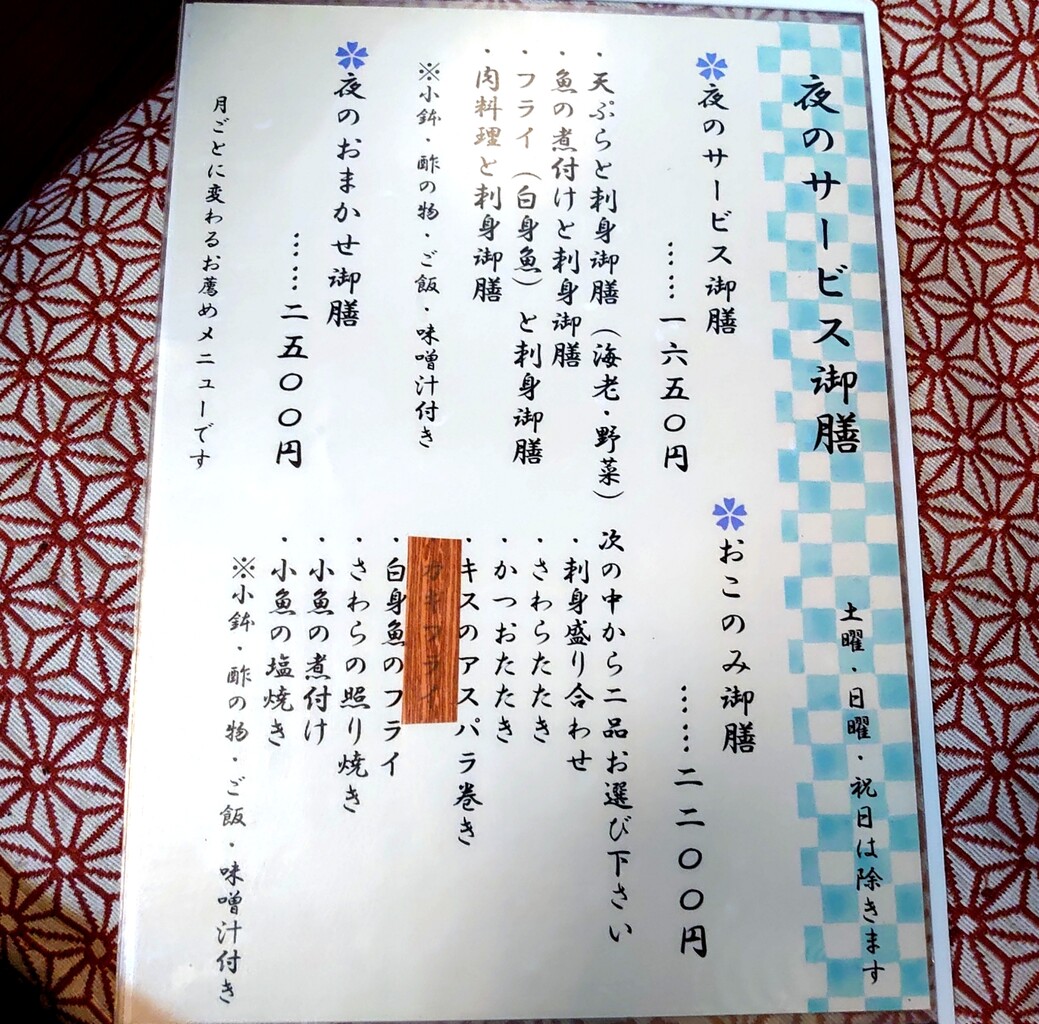 夜のサービス御膳
土曜・日曜・祝日は除きます
夜のサービス御膳
……一六五〇円
・天ぷらと刺身御膳(海老・野菜)
・魚の煮付けと刺身御膳
・フライ(白身魚)と刺身御膳
・肉料理と刺身御膳
※小鉢・酢の物・ご飯・味噌汁付き
夜のおまかせ御膳
……二五〇〇円
月ごとに変わるお薦めメニューです
おこのみ御膳
……二二〇〇円
次の中から二品お選び下さい
・刺身盛り合わせ
・さわらたたき
・かつおたたき
・キスのアスパラ巻き
カキフライ
・白身魚のフライ
・さわらの照り焼き
・小魚の煮付け
・小魚の塩焼き
※小鉢・酢の物・ご飯・味噌汁付き